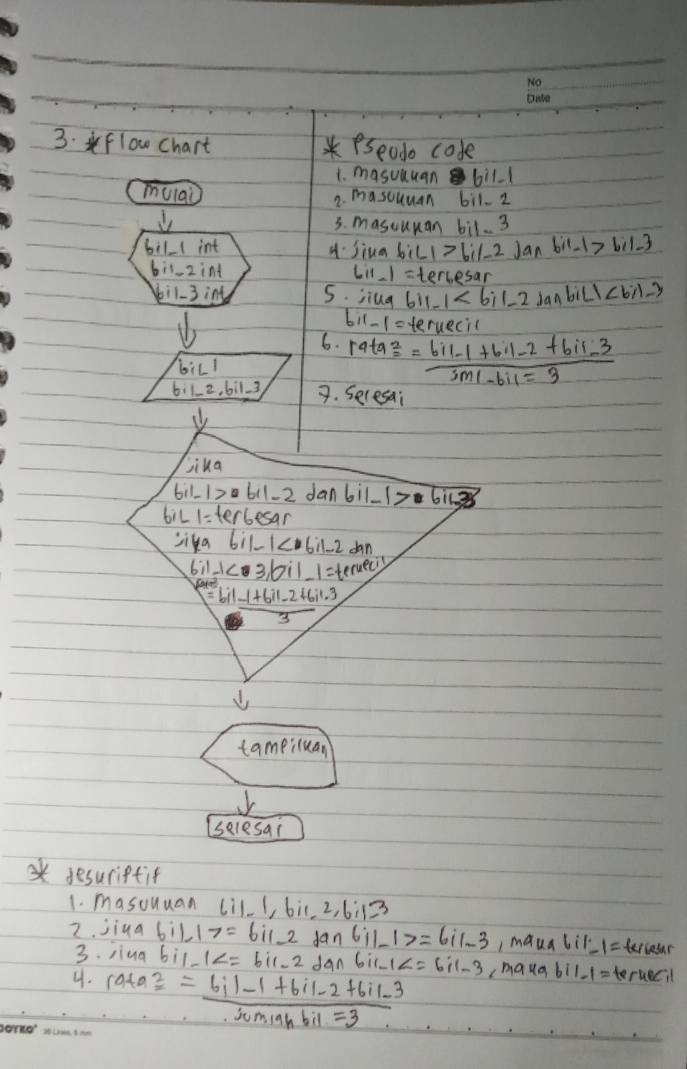 No
Date
3. * Flow Chart
mulai
bil_1 int
bil_2 int
bil_3 int
bil 1
bil_2, bil_3
jika
bil_1 > bil_2 dan bil_1 > bil_3
bil 1 = terbesar
jika bil_1 < bil_2 dan
bil_1 < 3, bil_1 = terkecil
= bil_1 + bil_2 + bil_3
3
tampilkan
selesai
* Pseudo code
1. masukkan bil_1
2. masukkan bil_2
3. masukkan bil_3
4. jika bil_1 > bil_2 dan bil_1 > bil_3
bil_1 = terbesar
5. jika bil_1 < bil_2 dan bil_1 < bil_3
bil_1 = terkecil
6. rata2 = bil_1 + bil_2 + bil_3
jml_bil = 3
7. Selesai
* deskriptif
1. masukkan bil_1, bil_2, bil_3
2. jika bil_1 >= bil_2 dan bil_1 >= bil_3, maka bil_1 = terbesar
3. jika bil_1 <= bil_2 dan bil_1 <= bil_3, maka bil_1 = terkecil
4. rata2 = bil_1 + bil_2 + bil_3
jumlah bil = 3
36 Lines, 8 mm